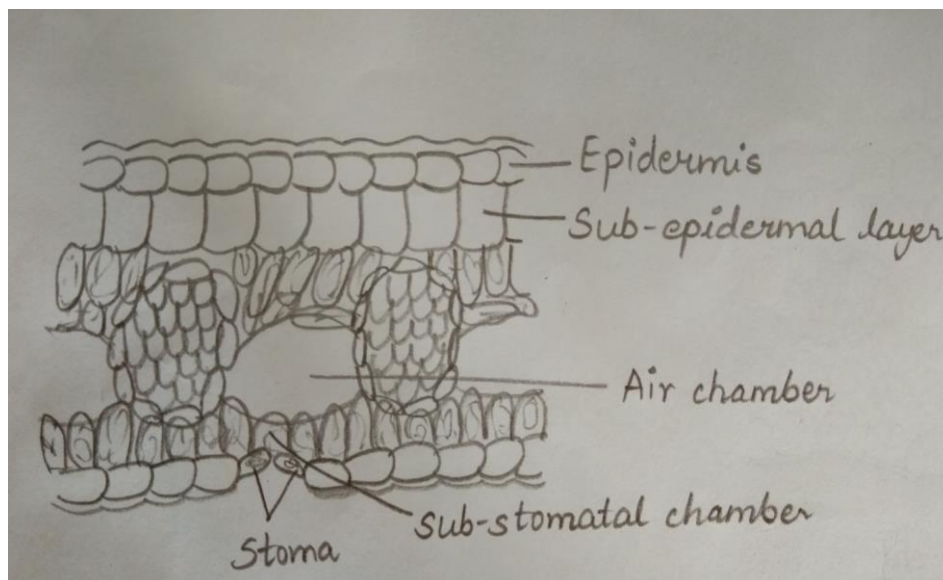 Epidermis
Sub-epidermal layer
Air chamber
Sub-stomatal chamber
Stoma